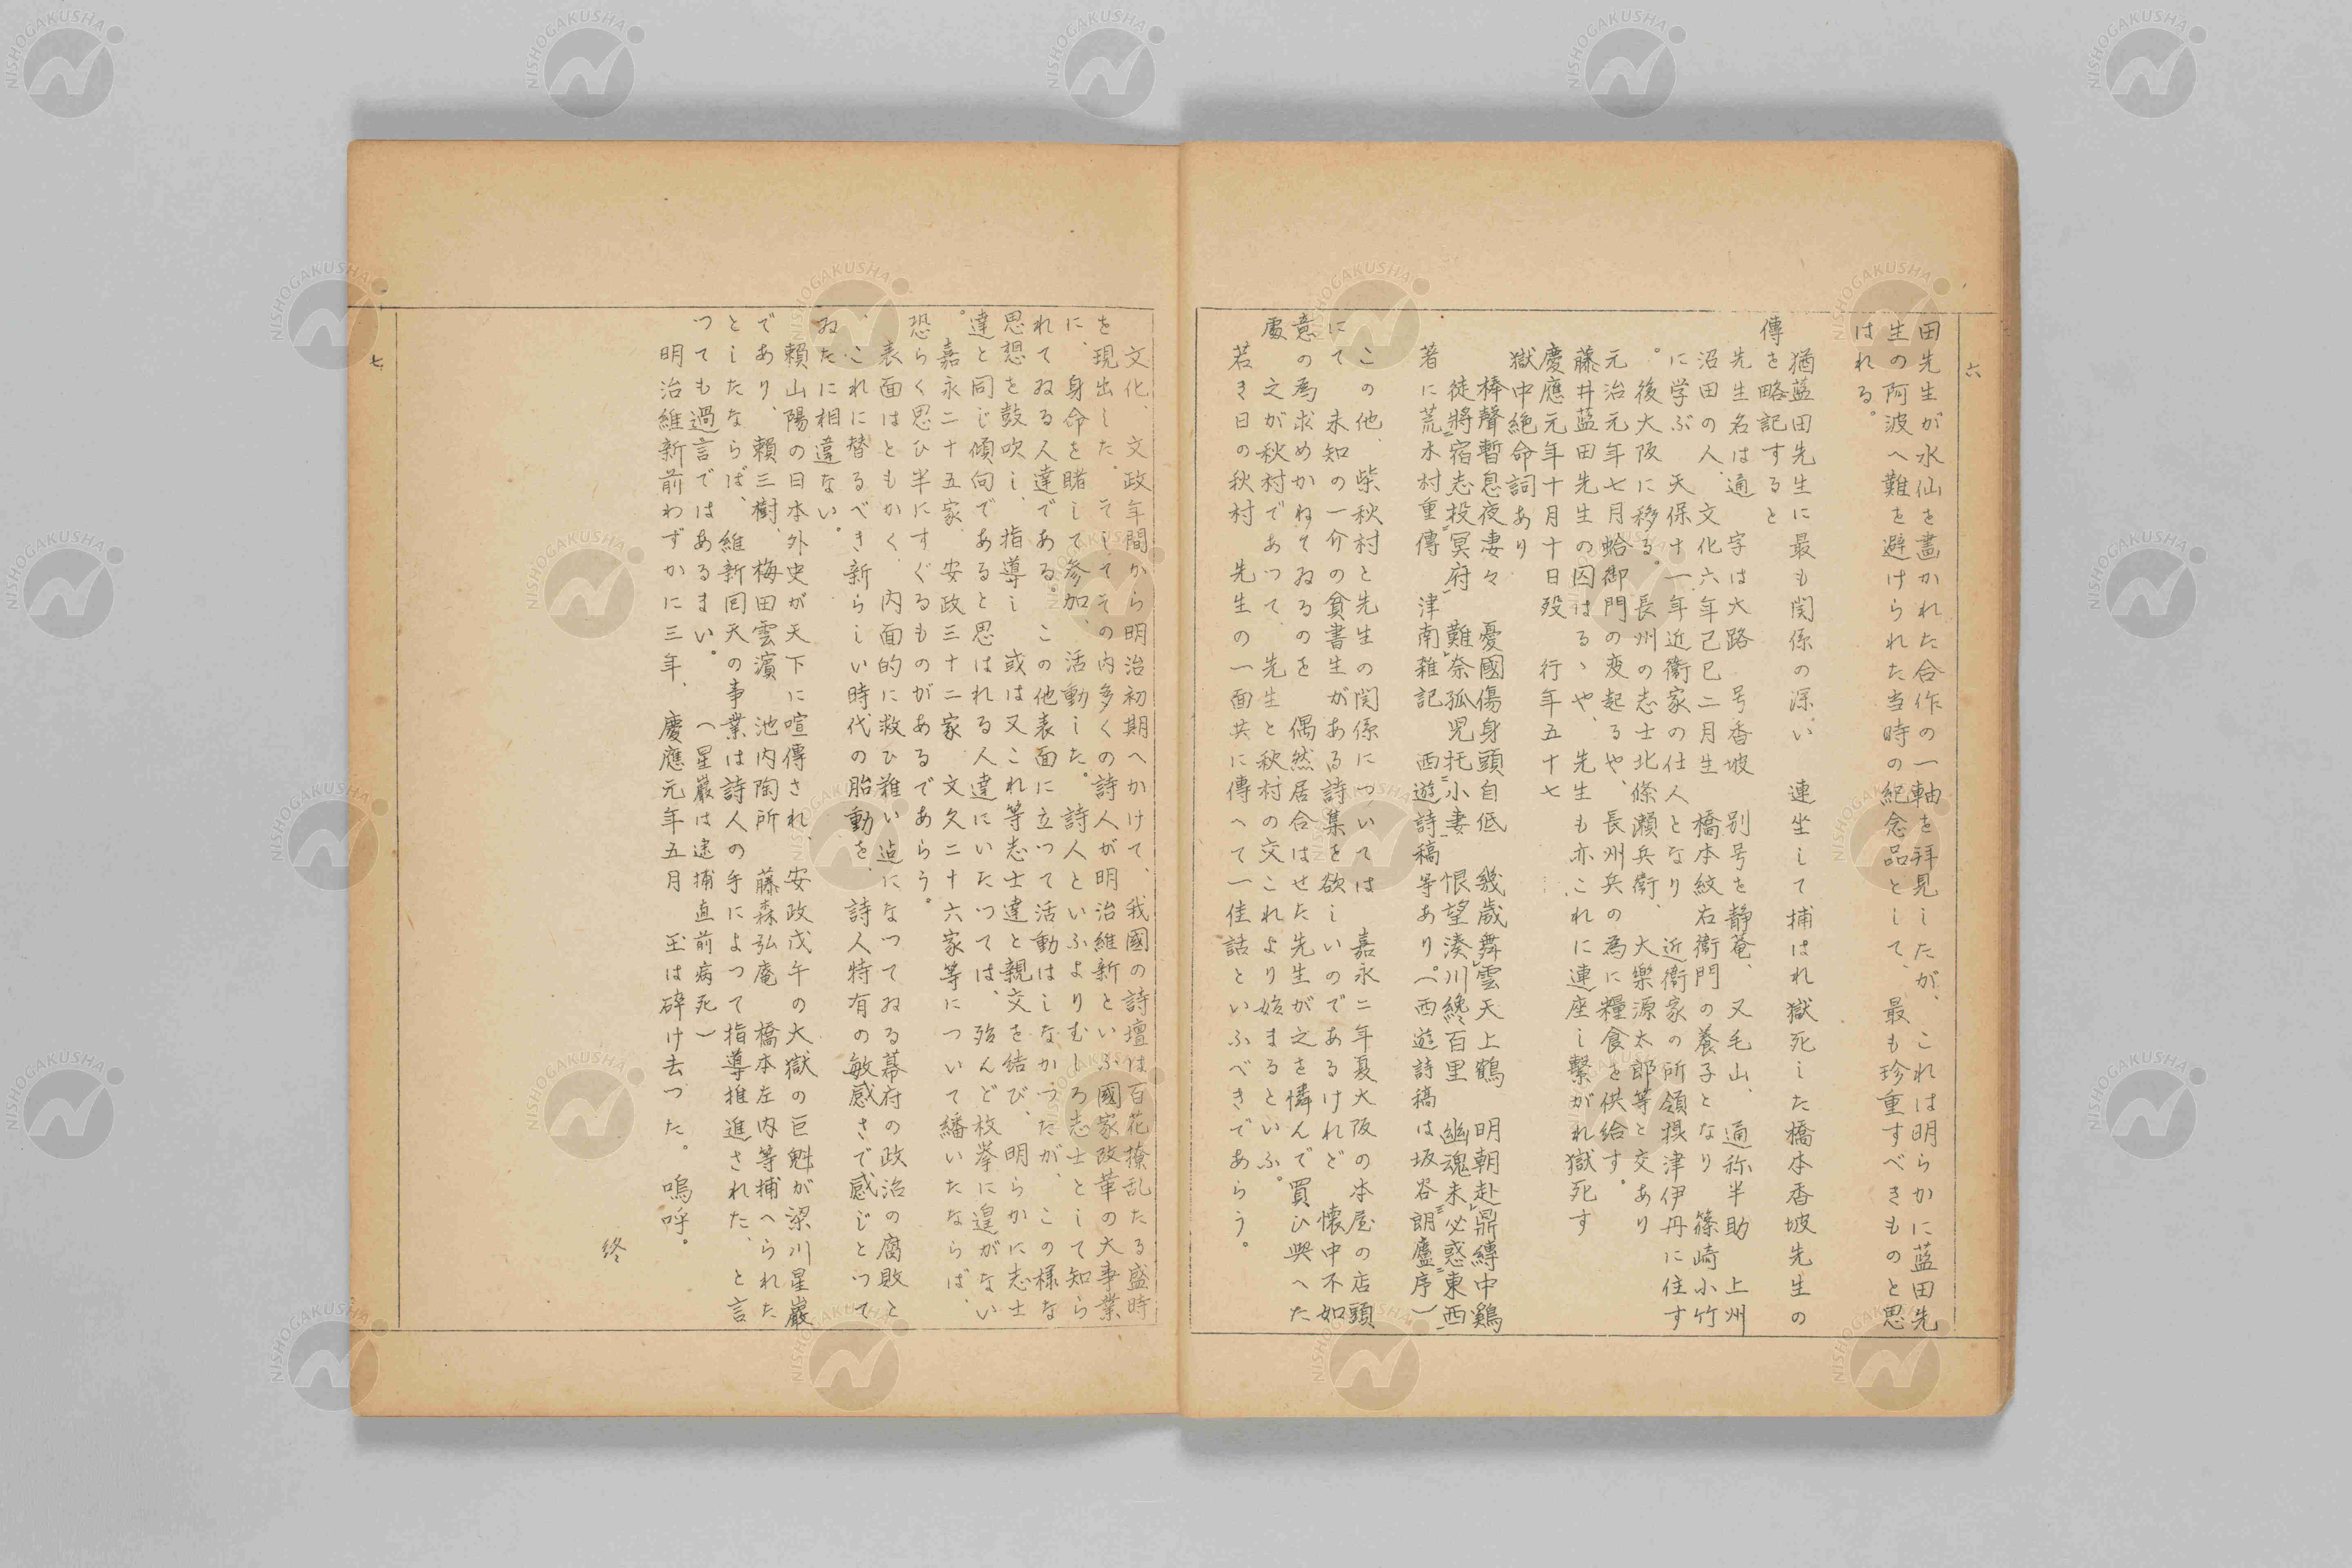 六
田先生が水仙を畵かれた合作の一軸を拜見したが、これは明らかに藍田先
生の阿波へ難を避けられた当時の紀念品として、最も珍重すべきものと思
はれる。
猶藍田先生に最も関係の深い 連坐して捕はれ獄死した橋本香坡先生の
傳を略記すると
先生名は通 字は大路 号香坡 別号を静菴、又毛山、通称半助 上州
沼田の人、文化六年己巳二月生 橋本紋右衞門の養子となり 篠崎小竹
に学ぶ 天保十一年近衞家の仕人となり 近衞家の所領摂津伊丹に住す
。後大阪に移る。長州の志士北條瀨兵衞、大樂源太郎等と交あり
元治元年七月蛤御門の変起るや、長州兵の為に糧食を供給す。
藤井藍田先生の囚はるゝや、先生も亦これに連座し繫がれ獄死す
慶應元年十月十日歿 行年五十七
獄中絶命詞あり
棒聲暫息夜凄々 憂國傷身頭自低 幾歳舞雲天上鶴 明朝赴鼎縛中鷄
徒將宿志投冥府 難奈孤児托小妻 恨望湊川纔百里 幽魂未必惑東西
著に荒木村重傳 津南雜記 西遊詩稿等あり(西遊詩稿は坂谷朗廬序)
この他、柴秋村と先生の関係については 嘉永二年夏大阪の本屋の店頭
にて 未知の一介の貧書生がある詩集を欲しいのであるけれど 懐中不如
意の為求めかねてゐるのを 偶然居合はせた先生が之を憐んで買ひ興へた
處 之が秋村であつて、先生と秋村の交これより始まるといふ。
若き日の秋村 先生の一面共に傳へて一佳話といふべきであらう。
文化、文政年間から明治初期へかけて、我國の詩壇は百花撩乱たる盛時
を現出した。そしてその内多くの詩人が明治維新といふ國家改革の大事業
に、身命を賭して参加、活動した。詩人といふよりむしろ志士として知ら
れてゐる人達である。この他表面に立つて活動はしなかつたが、この様な
思想を鼓吹し、指導し 或は又これ等志士達と親交を結び、明らかに志士
達と同じ傾向であると思はれる人達にいたつては、殆んど枚挙に遑がない
。嘉永二十五家、安政三十二家 文久二十六家等について繙いたならば、
恐らく思ひ半にすぐるものがあるであらう。
表面はともかく、内面的に救ひ難い迠になつてゐる幕府の政治の腐敗と
、これに替るべき新らしい時代の胎動を、詩人特有の敏感さで感じとつて
ゐたに相違ない。
賴山陽の日本外史が天下に喧傳され、安政戊午の大獄の巨魁が梁川星巌
であり、賴三樹、梅田雲濱 池内陶所 藤森弘庵 橋本左内等捕へられた
としたならば、維新回天の事業は詩人の手によつて指導推進された、と言
つても過言ではあるまい。(星巌は逮捕直前病死)
明治維新前わずかに三年、慶應元年五月 玉は碎け去つた。嗚呼。
終
七